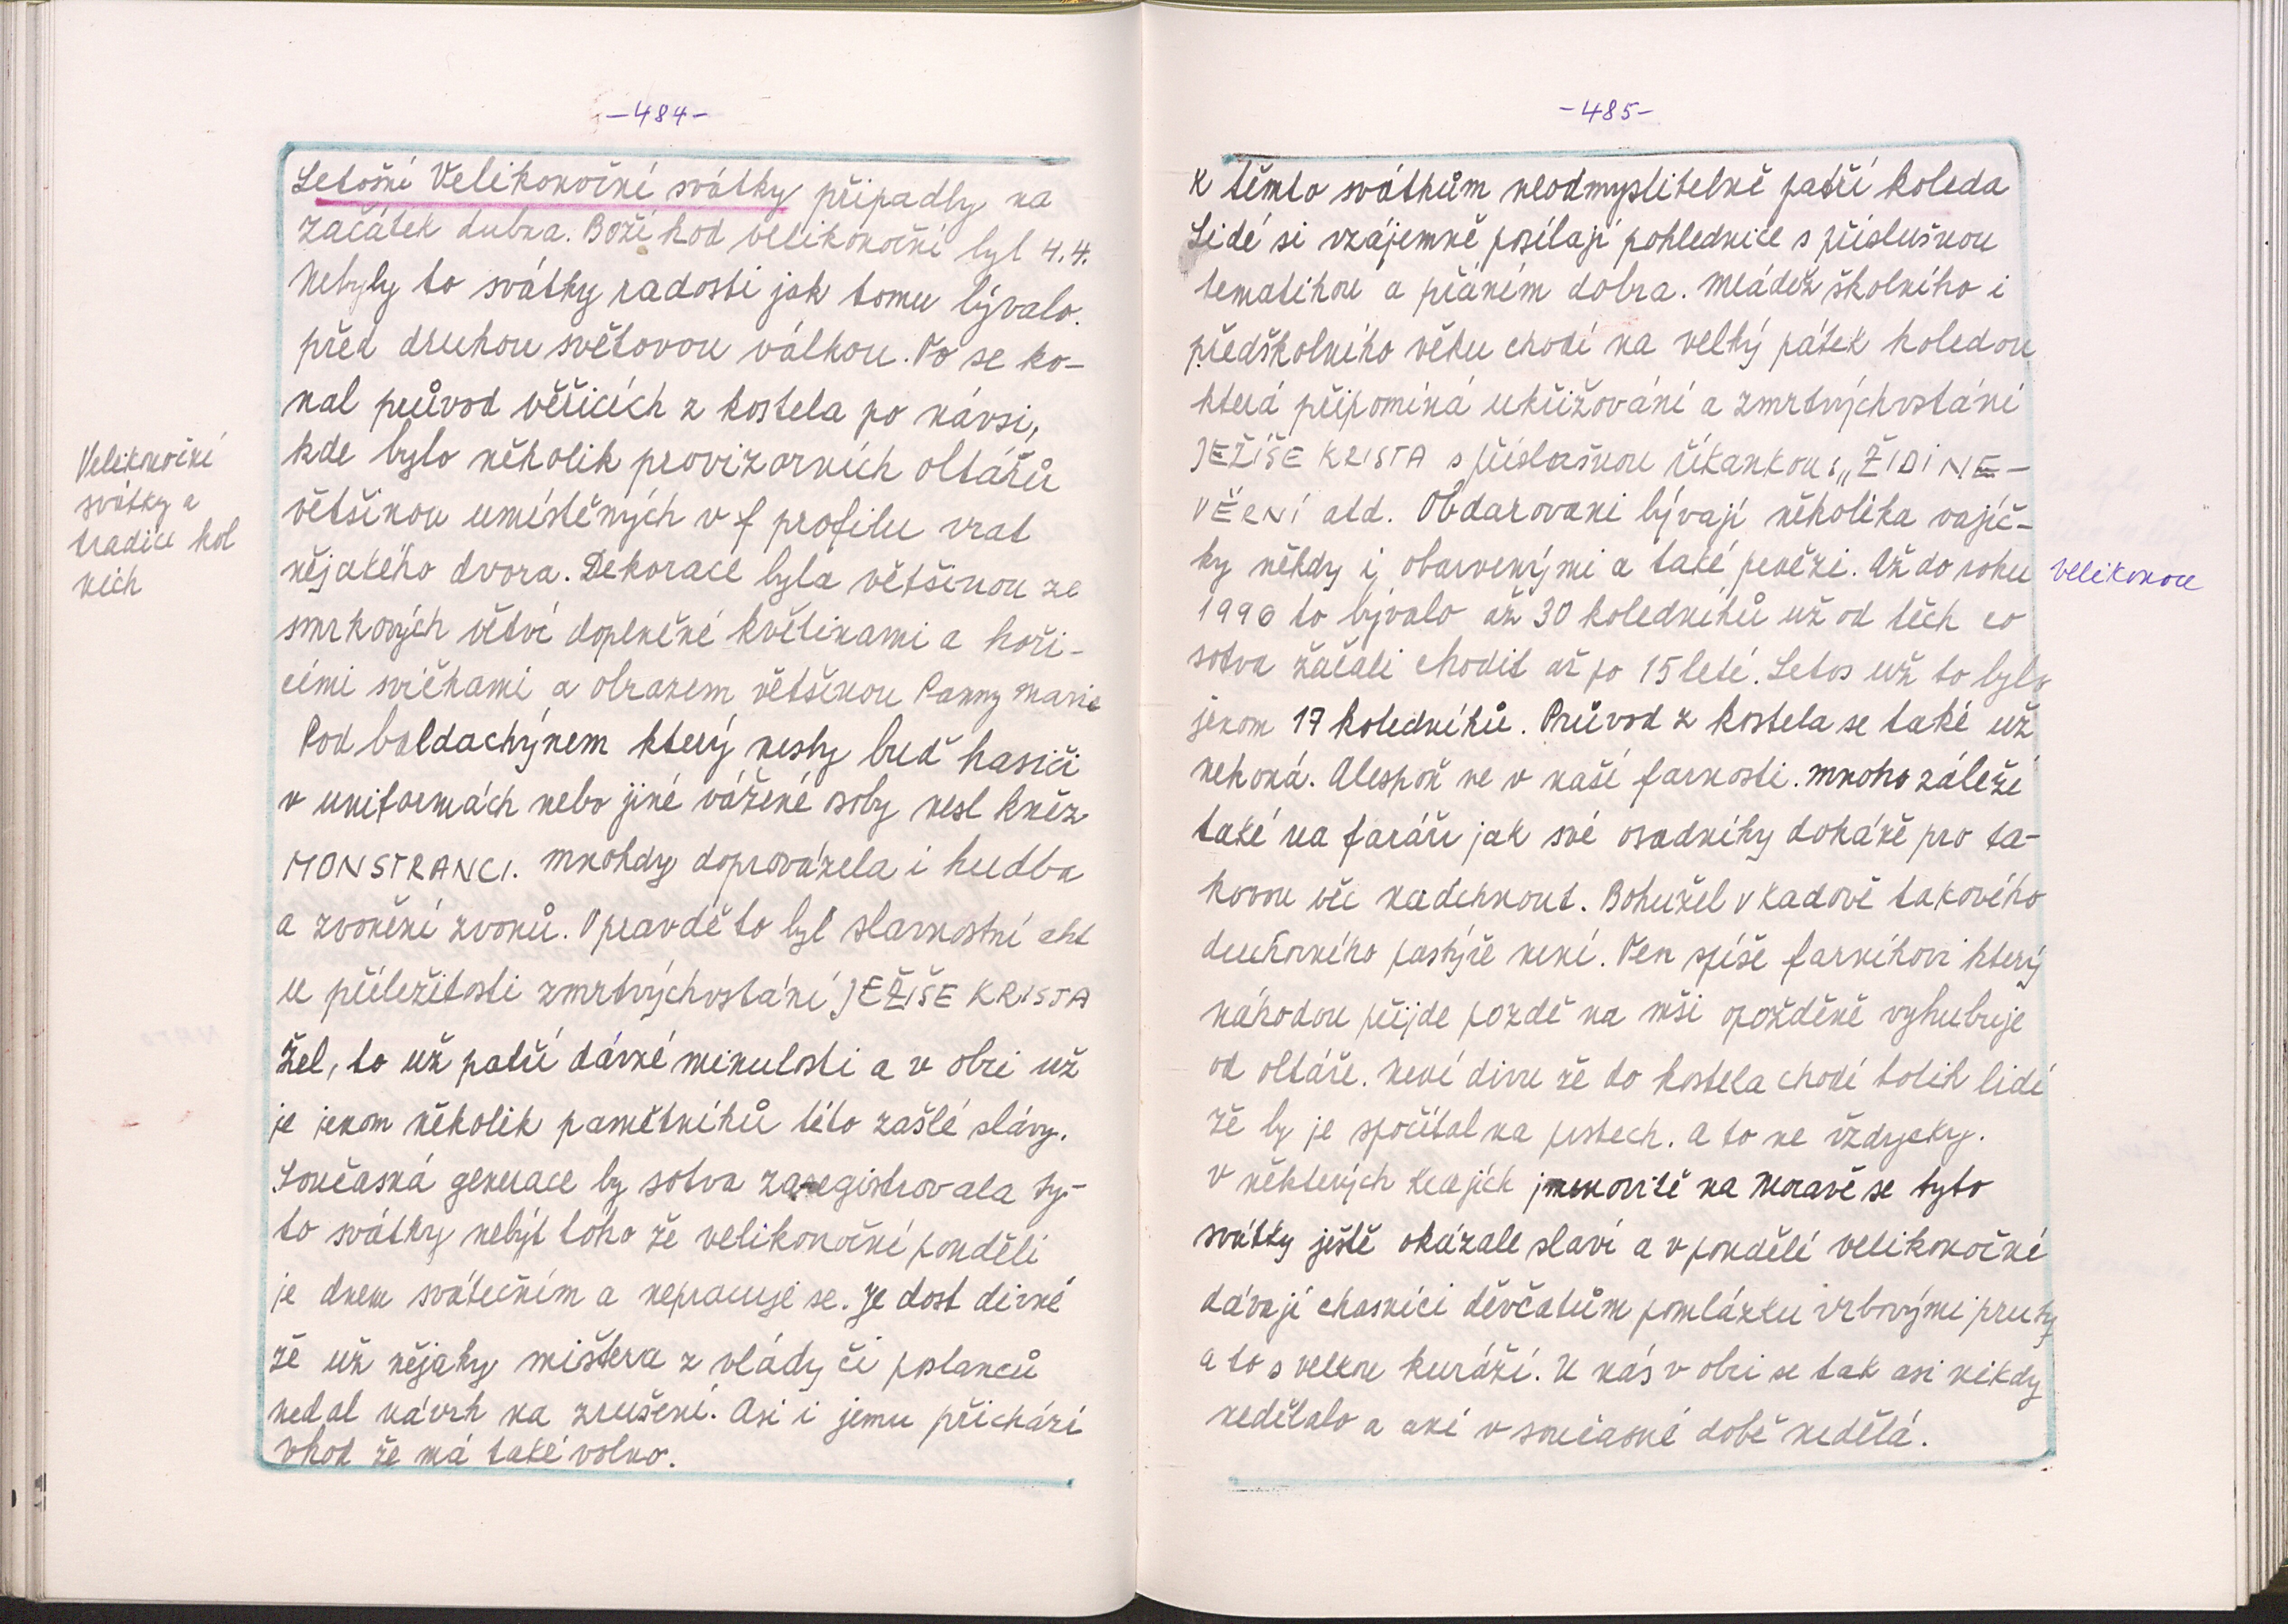 -484-
Letošní Velikonoční svátky připadly na
začátek dubna. Boží hod velikonoční byl 4.4.
Nebyly to svátky radosti jak tomu bývalo
před druhou světovou válkou. To se ko-
nal průvod věřících z kostela po návsi,
kde bylo několik provizorních oltářů
většinou umístěných v profilu vrat
nějakého dvora. Dekorace byla většinou ze
smrkových větví doplněné květinami a hoří-
cími svíčkami a obrazem většinou Panny Marie
Pod baldachýnem který nesly buď hasiči
v uniformách nebo jiné vážené osoby nesl kněz
MONSTRANCI. Mnohdy doprovázela i hudba
a zvonění zvonů. Opravdě to byl slavnostní akt
u příležitosti zmrtvýchvstání JEŽÍŠE KRISTA
Žel, to už patří dávné minulosti a v obci už
je jenom několik pamětníků této zašlé slávy.
Současná generace by sotva zaregistrovala ty-
to svátky nebýt toho že velikonoční pondělí
je dnem svátečním a nepracuje se. Je dost divné
že už nějaky mištera z vlády či poslanců
nedal návrh na zrušení. Asi i jemu přichází
vhod že má také volno.
Velikonoční
svátky a
tradice kol
nich
-485-
K těmto svátkům neodmyslitelně patří koleda
Lidé si vzájemně posílají pohlednice s příslušnou
tematikou a přáním dobra. Mládež školního i
předškolního věku chodí na velký pátek koledou
která připomíná ukřižování a zmrtvýchvstání
JEŽÍŠE KRISTA s příslušnou říkankou: „ŽIDI NE-
VĚRNÍ atd. Obdarovani bývají několika vajíč-
ky někdy i obarvenými a také penězi. Až do roku
1990 to bývalo až 30 koledníků už od těch co
sotva začali chodit až po 15 leté. Letos už to bylo
jenom 17 koledníků. Průvod z kostela se také už
nekoná. Alespoň ne v naší farnosti. Mnoho záleží
také na faráři jak své osadníky dokáže pro ta-
kovou věc nadchnout. Bohužel v Kadově takového
duchovního pastýře není. Ten spíše farníkovi který
náhodou přijde pozdě na mši opožděně vyhubuje
od oltáře. Není divu že do kostela chodí tolik lidí
že by je spočítal na prstech. A to ne vždycky.
V některých krajích jmenovitě na Moravě se tyto
svátky ještě okázale slaví a v pondělí velikonoční
dávají chasníci děvčatům pomlázku vrbovými pruty
a to s velkou kuráží. U nás v obci se tak asi nikdy
nedělalo a ani v současné době nedělá.
velikonoce